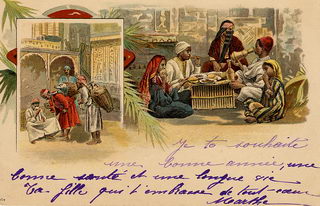 Je te souhaite
une bonne année, une
bonne santé et une longue vie
Ta fille qui t'embrasse de tout cœur
Marthe